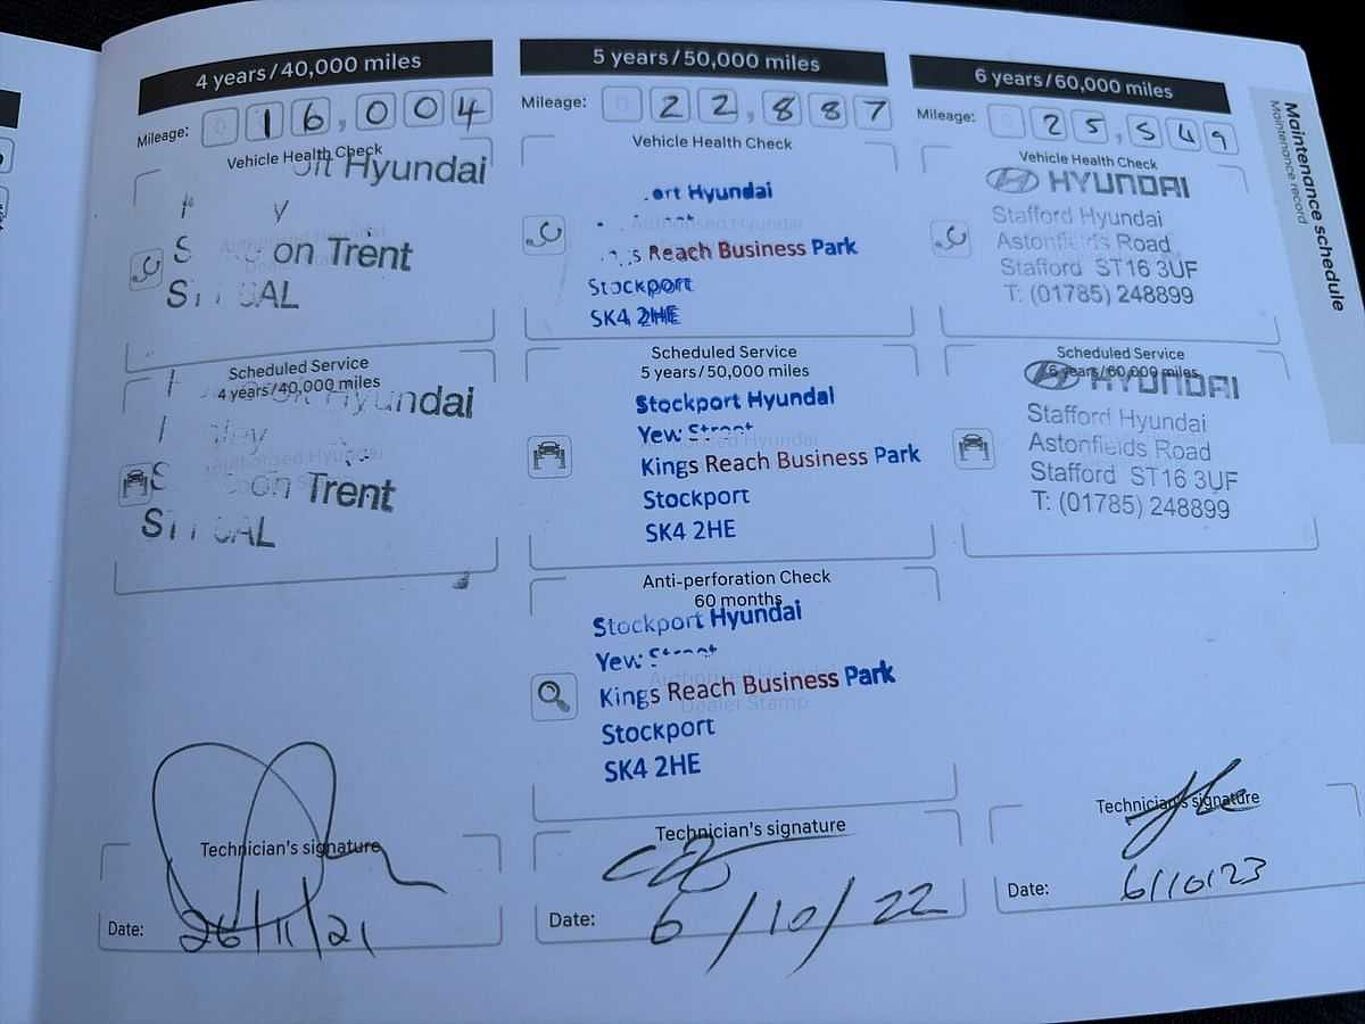 4 years/40,000 miles
Mileage: 16,004
Vehicle Health Check
Hyundai
on Trent
Scheduled Service
4 years/40,000 miles
on Trent
Technician's signature
Date: 26/11/21
5 years/50,000 miles
Mileage: 22,887
Vehicle Health Check
Hyundai
Reach Business Park
Stockport
SK4 2HE
Scheduled Service
5 years/50,000 miles
Stockport Hyundai
Yew Street
Kings Reach Business Park
Stockport
SK4 2HE
Anti-perforation Check
60 months
Stockport Hyundai
Yew Street
Kings Reach Business Park
Stockport
SK4 2HE
Technician's signature
Date: 6/10/22
6 years/60,000 miles
Mileage: 25,549
Vehicle Health Check
HYUNDAI
Stafford Hyundai
Astonfields Road
Stafford ST16 3UF
T: (01785) 248899
Scheduled Service
6 years/60,000 miles
HYUNDAI
Stafford Hyundai
Astonfields Road
Stafford ST16 3UF
T: (01785) 248899
Technician's signature
Date: 6/10/23
Maintenance schedule
Maintenance record